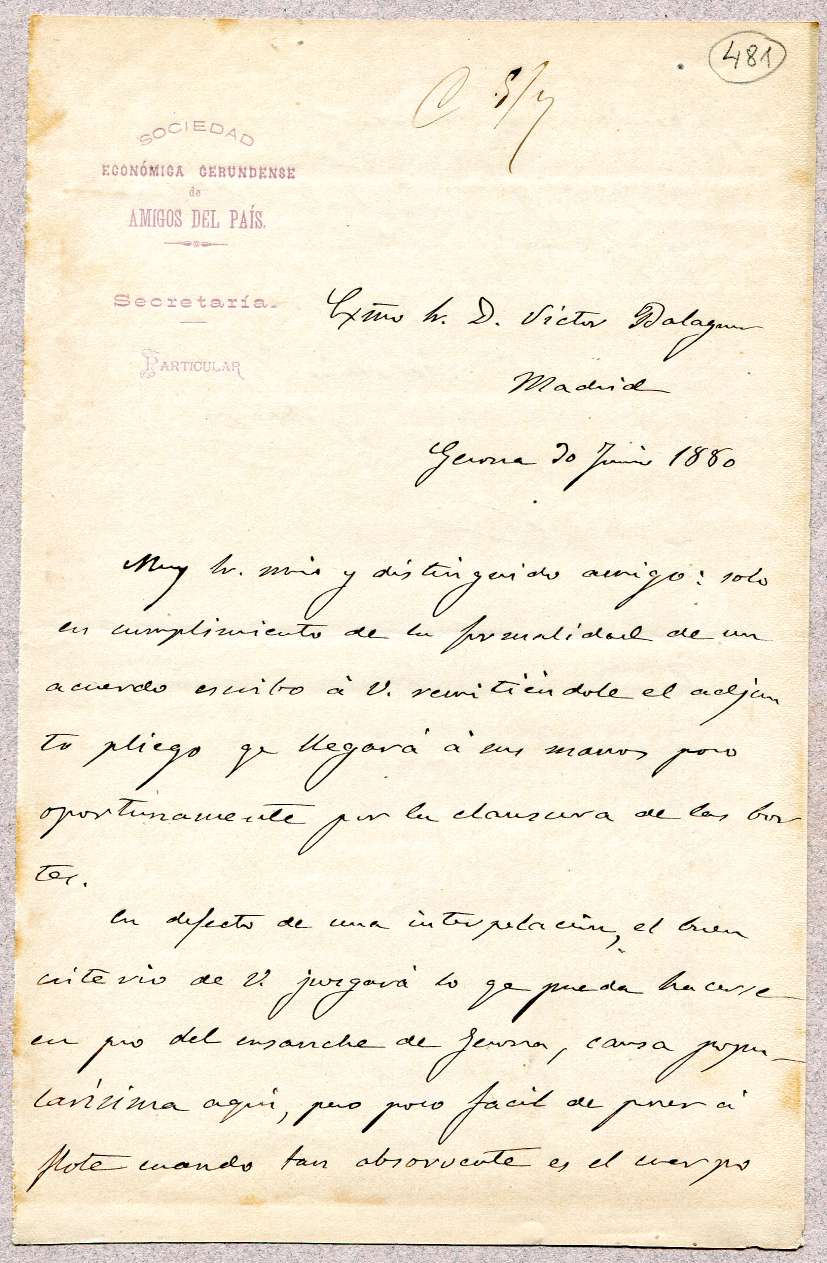 481
C 5/7
SOCIEDAD
ECONÓMICA GERUNDENSE
de
AMIGOS DEL PAÍS.
Secretaría.
PARTICULAR
Exmo Sr. D. Victor Balaguer
Madrid
Gerona 30 Junio 1880
Muy Sr. mio y distinguido amigo: solo
en cumplimiento de la formalidad de un
acuerdo escribo á V. remitiéndole el adjun
to pliego qe llegará á sus manos poco
oportunamente por la clausura de las Cor
tes.
En defecto de una interpelación, el buen
criterio de V. juzgará lo qe pueda hacerse
en pro del ensanche de Gerona, causa popu-
larísima aquí, pero poco facil de poner á
flote cuando tan absorvente es el cuerpo